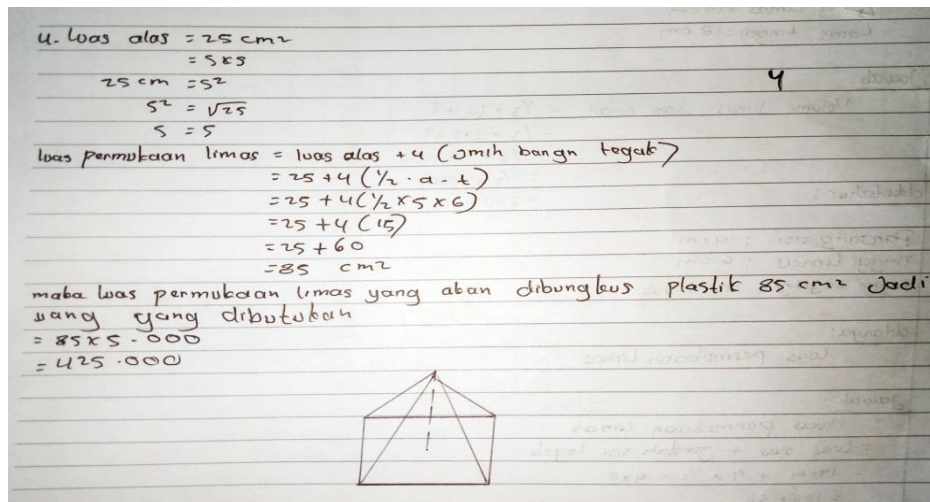 4. Luas alas = 25 cm2
= 5x5
25 cm = 5²
4
5² = √25
5 = 5
luas permukaan limas = luas alas + 4 (Jmlh bangn tegak)
= 25 + 4 (1/2 . a . t)
= 25 + 4 (1/2 x 5 x 6)
= 25 + 4 (15)
= 25 + 60
= 85 cm2
maka luas permukaan limas yang akan dibungkus plastik 85 cm2 Jadi
uang yang dibutukan
= 85 x 5.000
= 425.000